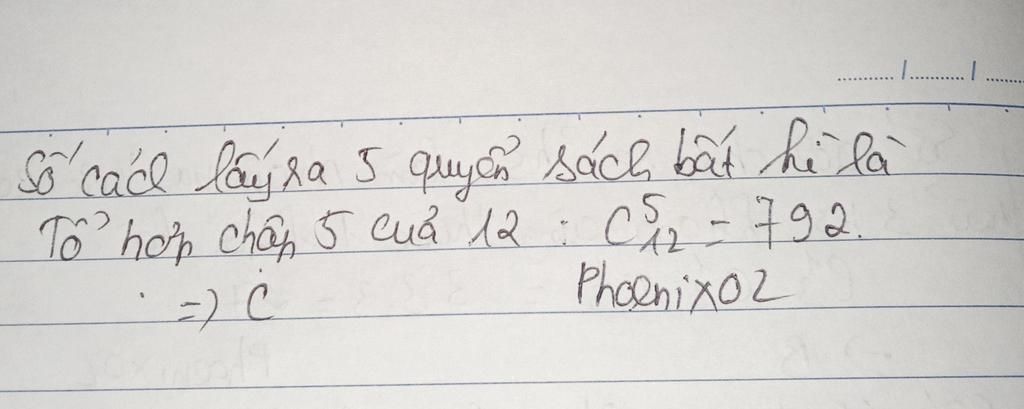 Số cách lấy ra 5 quyển sách bất kì là
Tổ hợp chập 5 của 12 : C⁵₁₂ = 792.
=) C
Phoenix02